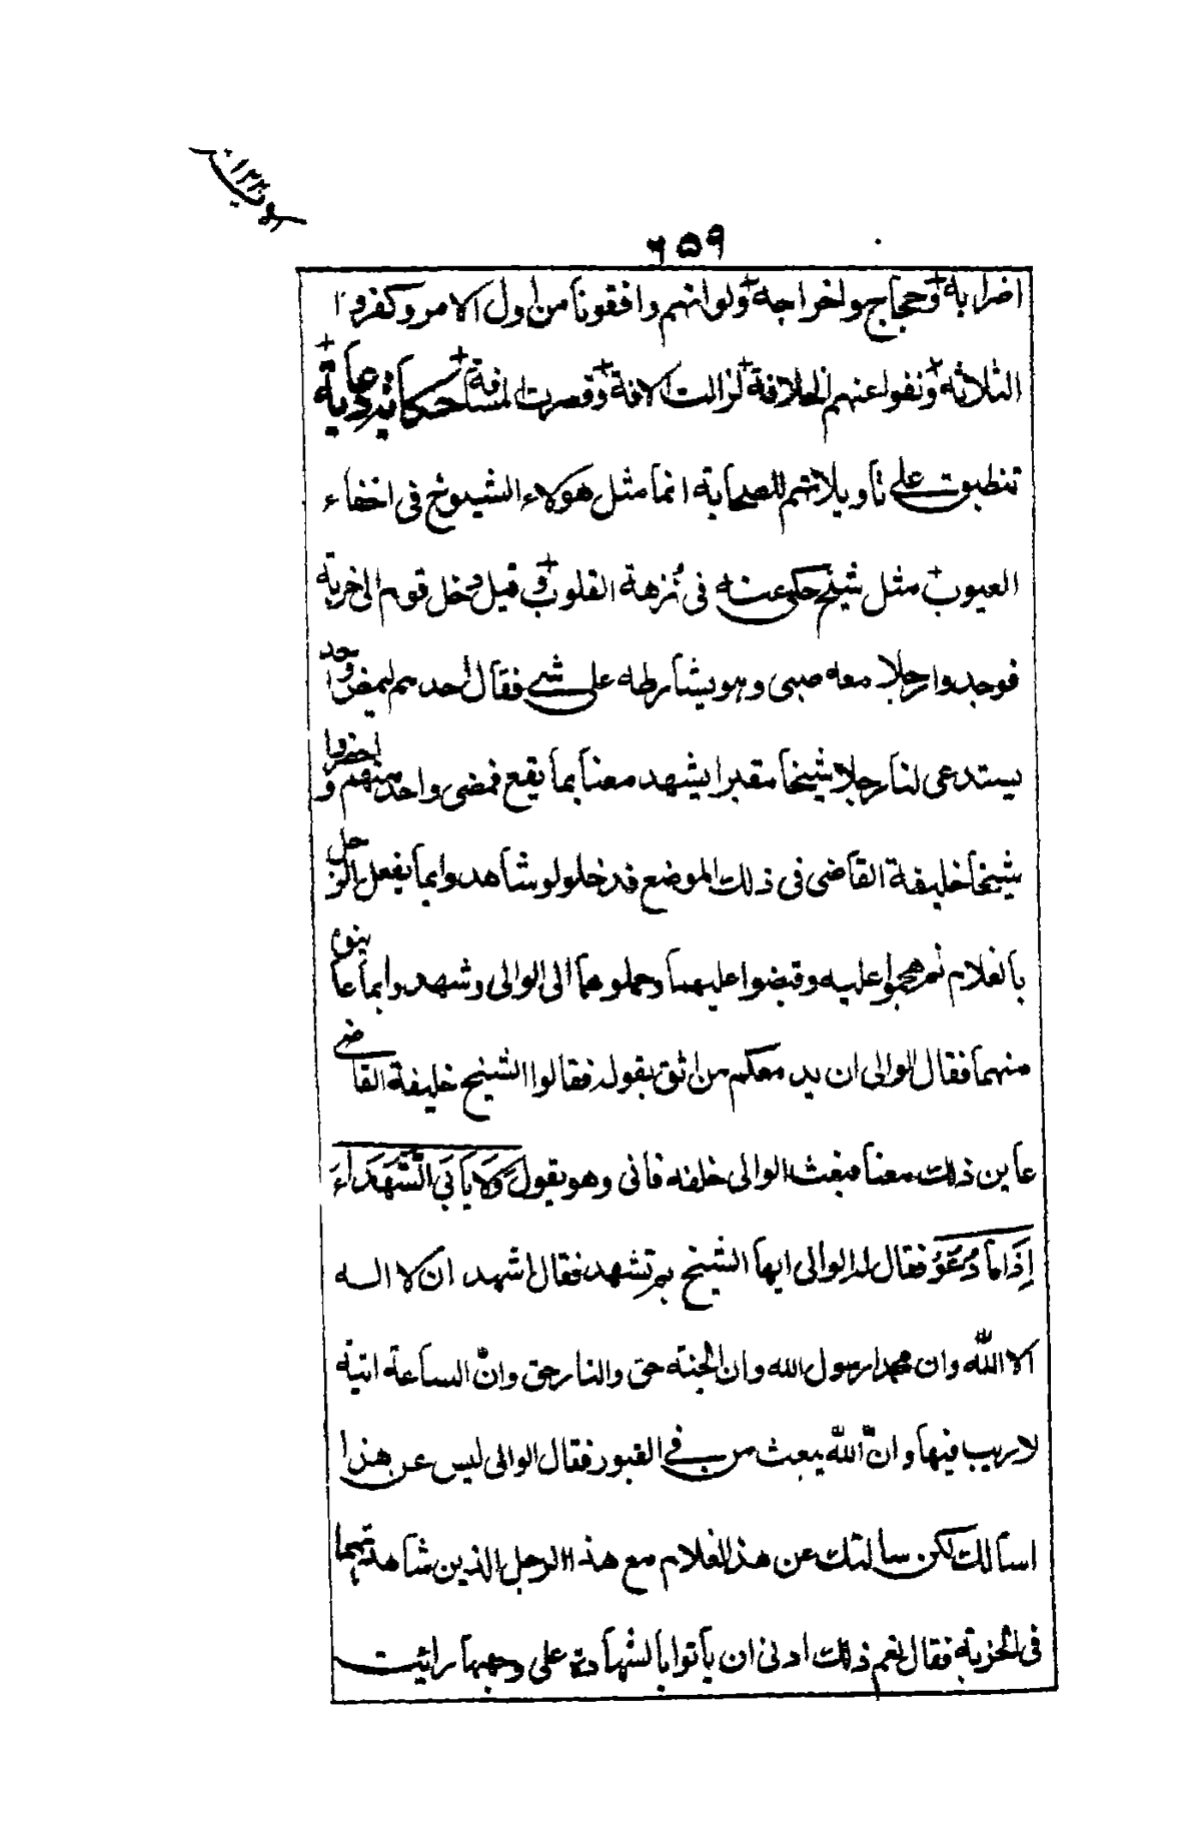 ٦٥٩
اضرابه وحجاج واخراجه ولو انهم وافقونا من اول الامر وكفروا
الثلاثة ونفوا عنهم الخلافة لزالت الافة وقصرت المسافة حكاية
تنطبق على تاويلاتهم للصحابة انما مثل هولاء الشيوخ فى اخفاء
العيوب مثل شيخ حكى عنه فى نُزهة القلوب و قيل دخل قوم الى خربة
فوجدوا رجلا معه صبى وهو يشارطه على شي فقال احدهم ليمض واحد
يستدعى لنا رجلا شيخا مقبرا يشهد معنا بما يقع فمضى واحد منهم واحضروا
شيخا خليفة القاضى فى ذلك الموضع فدخلوا وشاهدوا ما يفعل الرجل
بالغلام ثم هجموا عليه وقبضوا عليهما وحملوهما الى الوالى وشهدوا بما عاينوه
منهما فقال الوالى اريد معكم من اثق بقوله فقالوا الشيخ خليفة القاضي
عاين ذلك معنا فبعث الوالى خلفه فاتى وهو يقول وَلَا يَأبَى الشُّهَدَاءُ
إِذَا مَا دُعُوْ فقال له الوالى ايها الشيخ بم تشهد فقال اشهد ان لا اله
الا الله وان محمدا رسول الله وان الجنة حق والنار حق وانّ الساعة اتية
لا ريب فيها وانّ الله يبعث من في القبور فقال الوالى ليس عن هذا
اسألك لكن سالتك عن هذا الغلام مع هذا الرجل الذين شاهدتهما
فى الخربة فقال نعم ذلك ادنى ان يأتوا بالشهادة على وجهها رايت